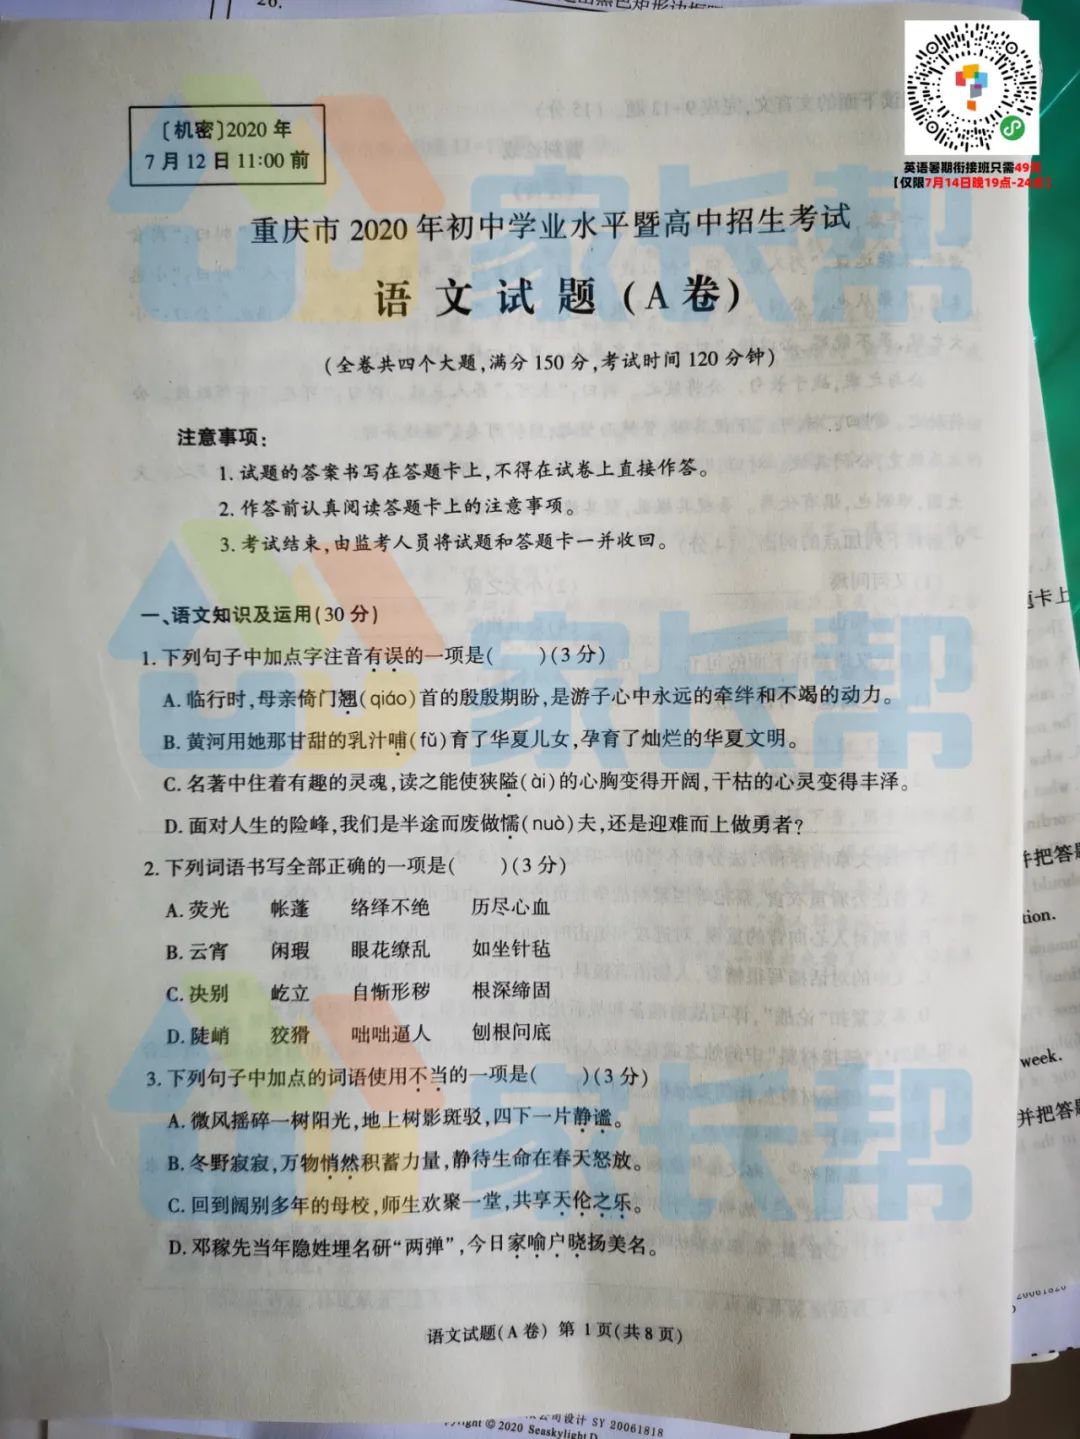 英语暑期衔接班只需49元
【仅限7月14日晚19点-24点】
[机密]2020年
7月12日11:00前
重庆市2020年初中学业水平暨高中招生考试
语文试题(A卷)
(全卷共四个大题,满分150分,考试时间120分钟)
注意事项:
1.试题的答案书写在答题卡上,不得在试卷上直接作答。
2.作答前认真阅读答题卡上的注意事项。
3.考试结束,由监考人员将试题和答题卡一并收回。
一、语文知识及运用(30分)
1.下列句子中加点字注音有误的一项是(  )(3分)
A.临行时,母亲倚门翘(qiáo)首的殷殷期盼,是游子心中永远的牵绊和不竭的动力。
B.黄河用她那甘甜的乳汁哺(fǔ)育了华夏儿女,孕育了灿烂的华夏文明。
C.名著中住着有趣的灵魂,读之能使狭隘(ài)的心胸变得开阔,干枯的心灵变得丰泽。
D.面对人生的险峰,我们是半途而废做懦(nuò)夫,还是迎难而上做勇者?
2.下列词语书写全部正确的一项是(  )(3分)
A.荧光 帐蓬 络绎不绝 历尽心血
B.云宵 闲瑕 眼花缭乱 如坐针毡
C.决别 屹立 自惭形秽 根深缔固
D.陡峭 狡猾 咄咄逼人 刨根问底
3.下列句子中加点的词语使用不当的一项是(  )(3分)
A.微风摇碎一树阳光,地上树影斑驳,四下一片静谧。
B.冬野寂寂,万物悄然积蓄力量,静待生命在春天怒放。
C.回到阔别多年的母校,师生欢聚一堂,共享天伦之乐。
D.邓稼先当年隐姓埋名研“两弹”,今日家喻户晓扬美名。
语文试题(A卷) 第1页(共8页)
家长帮
家长帮
家长帮
题卡上
并把答题
tion.
week.
并把答题
20061820
公司设计 SY 20061818
© 2020 Seaskylight D